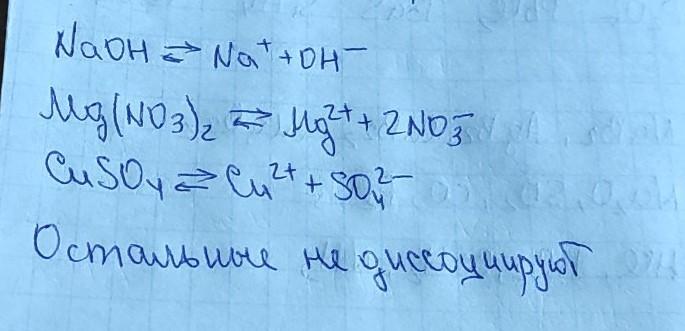 NaOH ⇄ Na⁺ + OH⁻
Mg(NO₃)₂ ⇄ Mg²⁺ + 2NO₃⁻
CuSO₄ ⇄ Cu²⁺ + SO₄²⁻
Остальные не диссоциируют